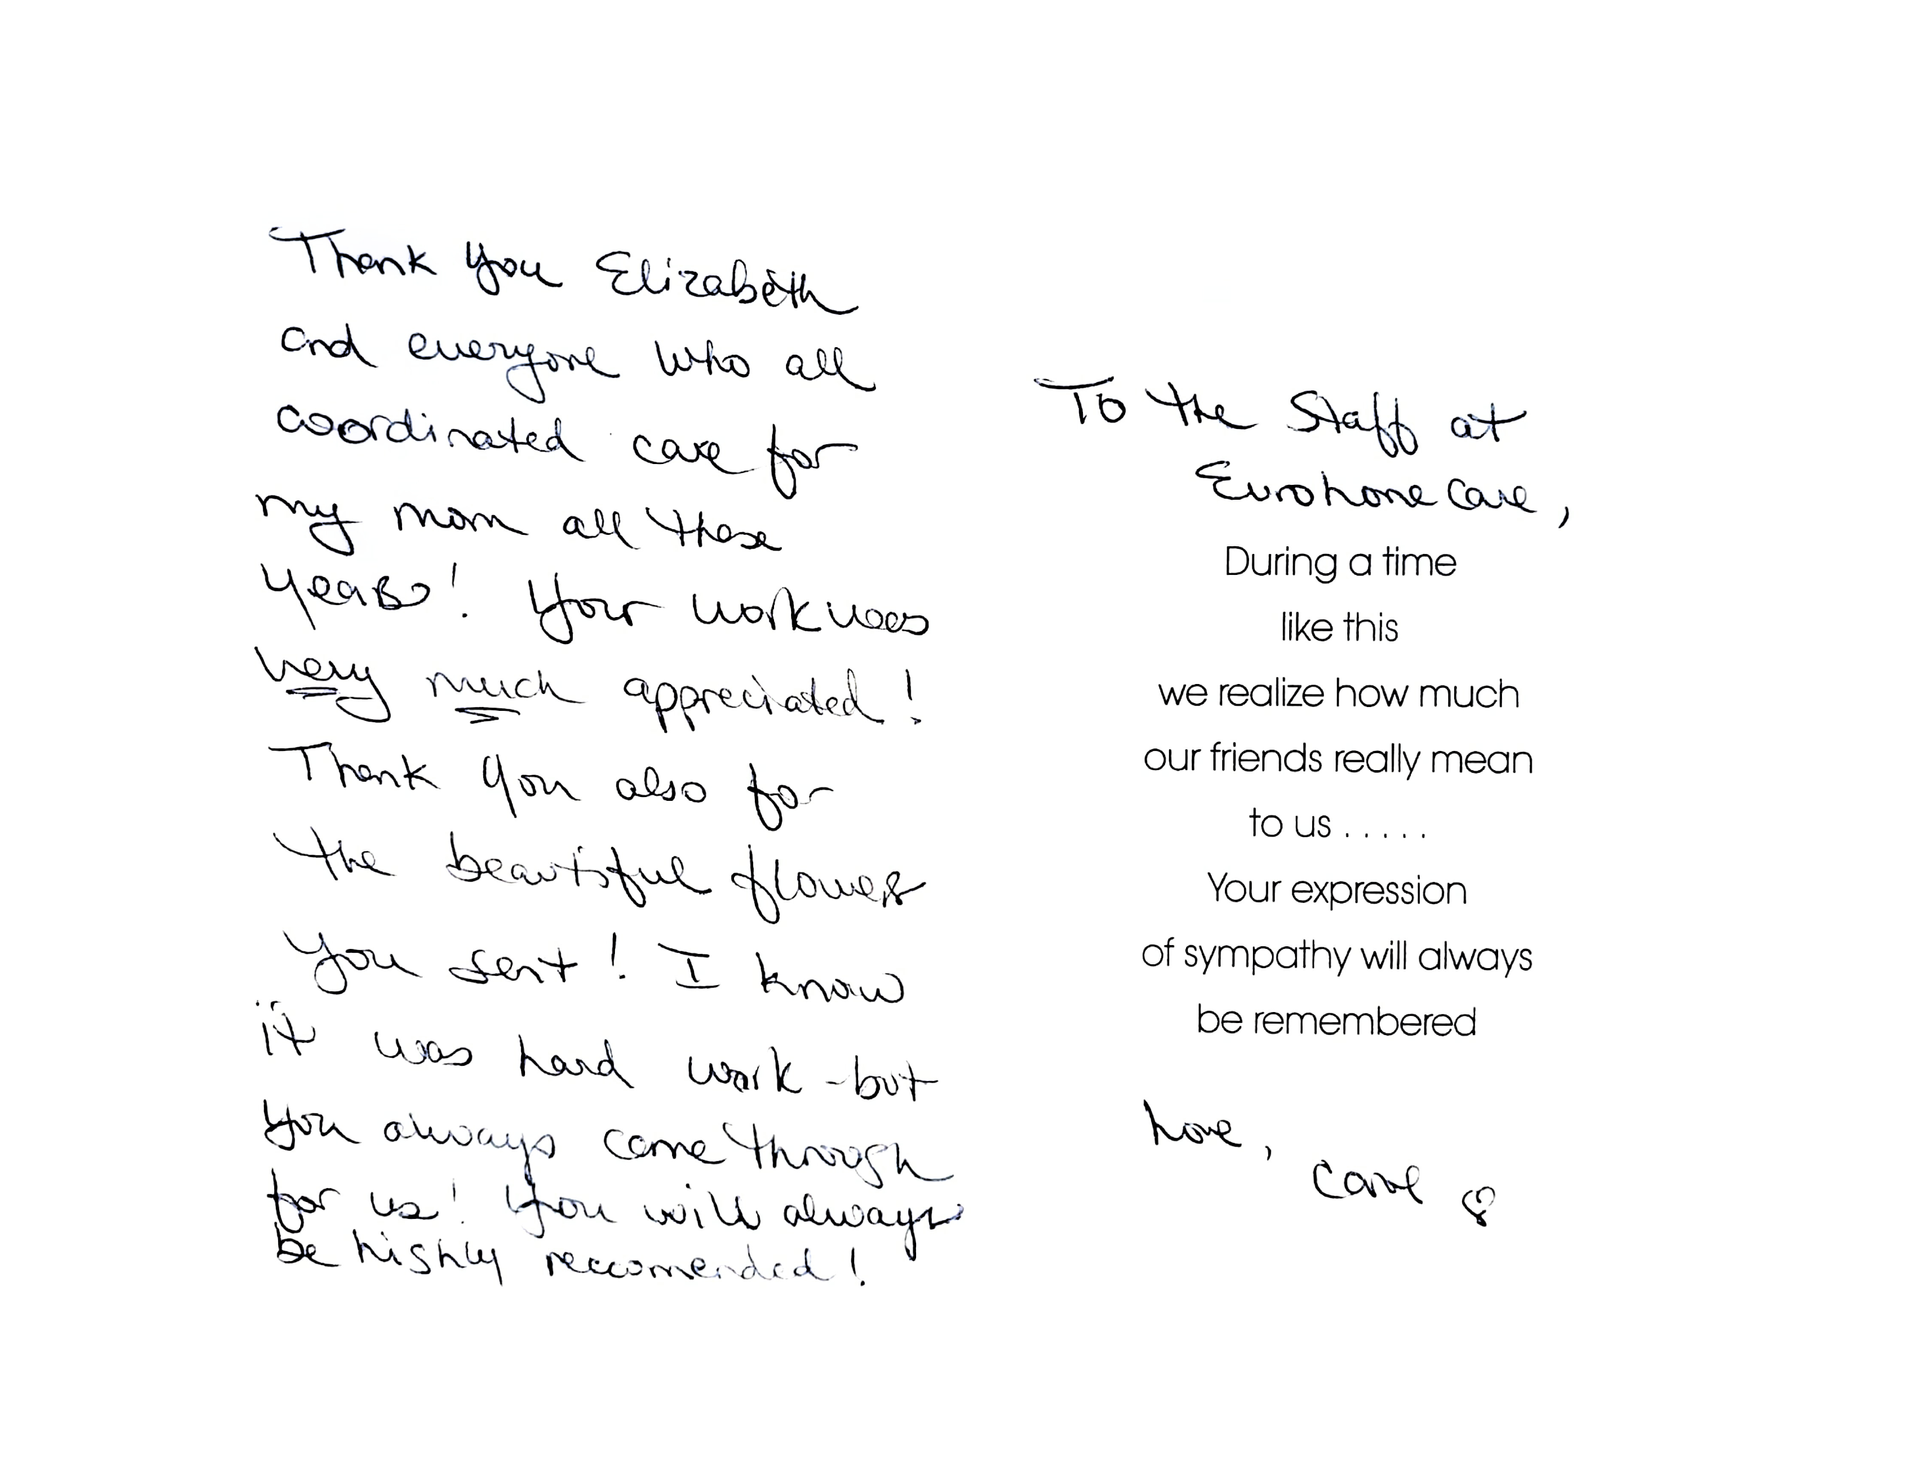 Thank you Elizabeth
and everyone who all
coordinated care for
my mom all these
years! Your work was
very much appreciated!
Thank you also for
the beautiful flowers
you sent! I know
it was hard work - but
you always came through
for us! You will always
be highly reccomended!
To the Staff at
Eurohome Care,
During a time
like this
we realize how much
our friends really mean
to us . . . . .
Your expression
of sympathy will always
be remembered
Love,
Carol